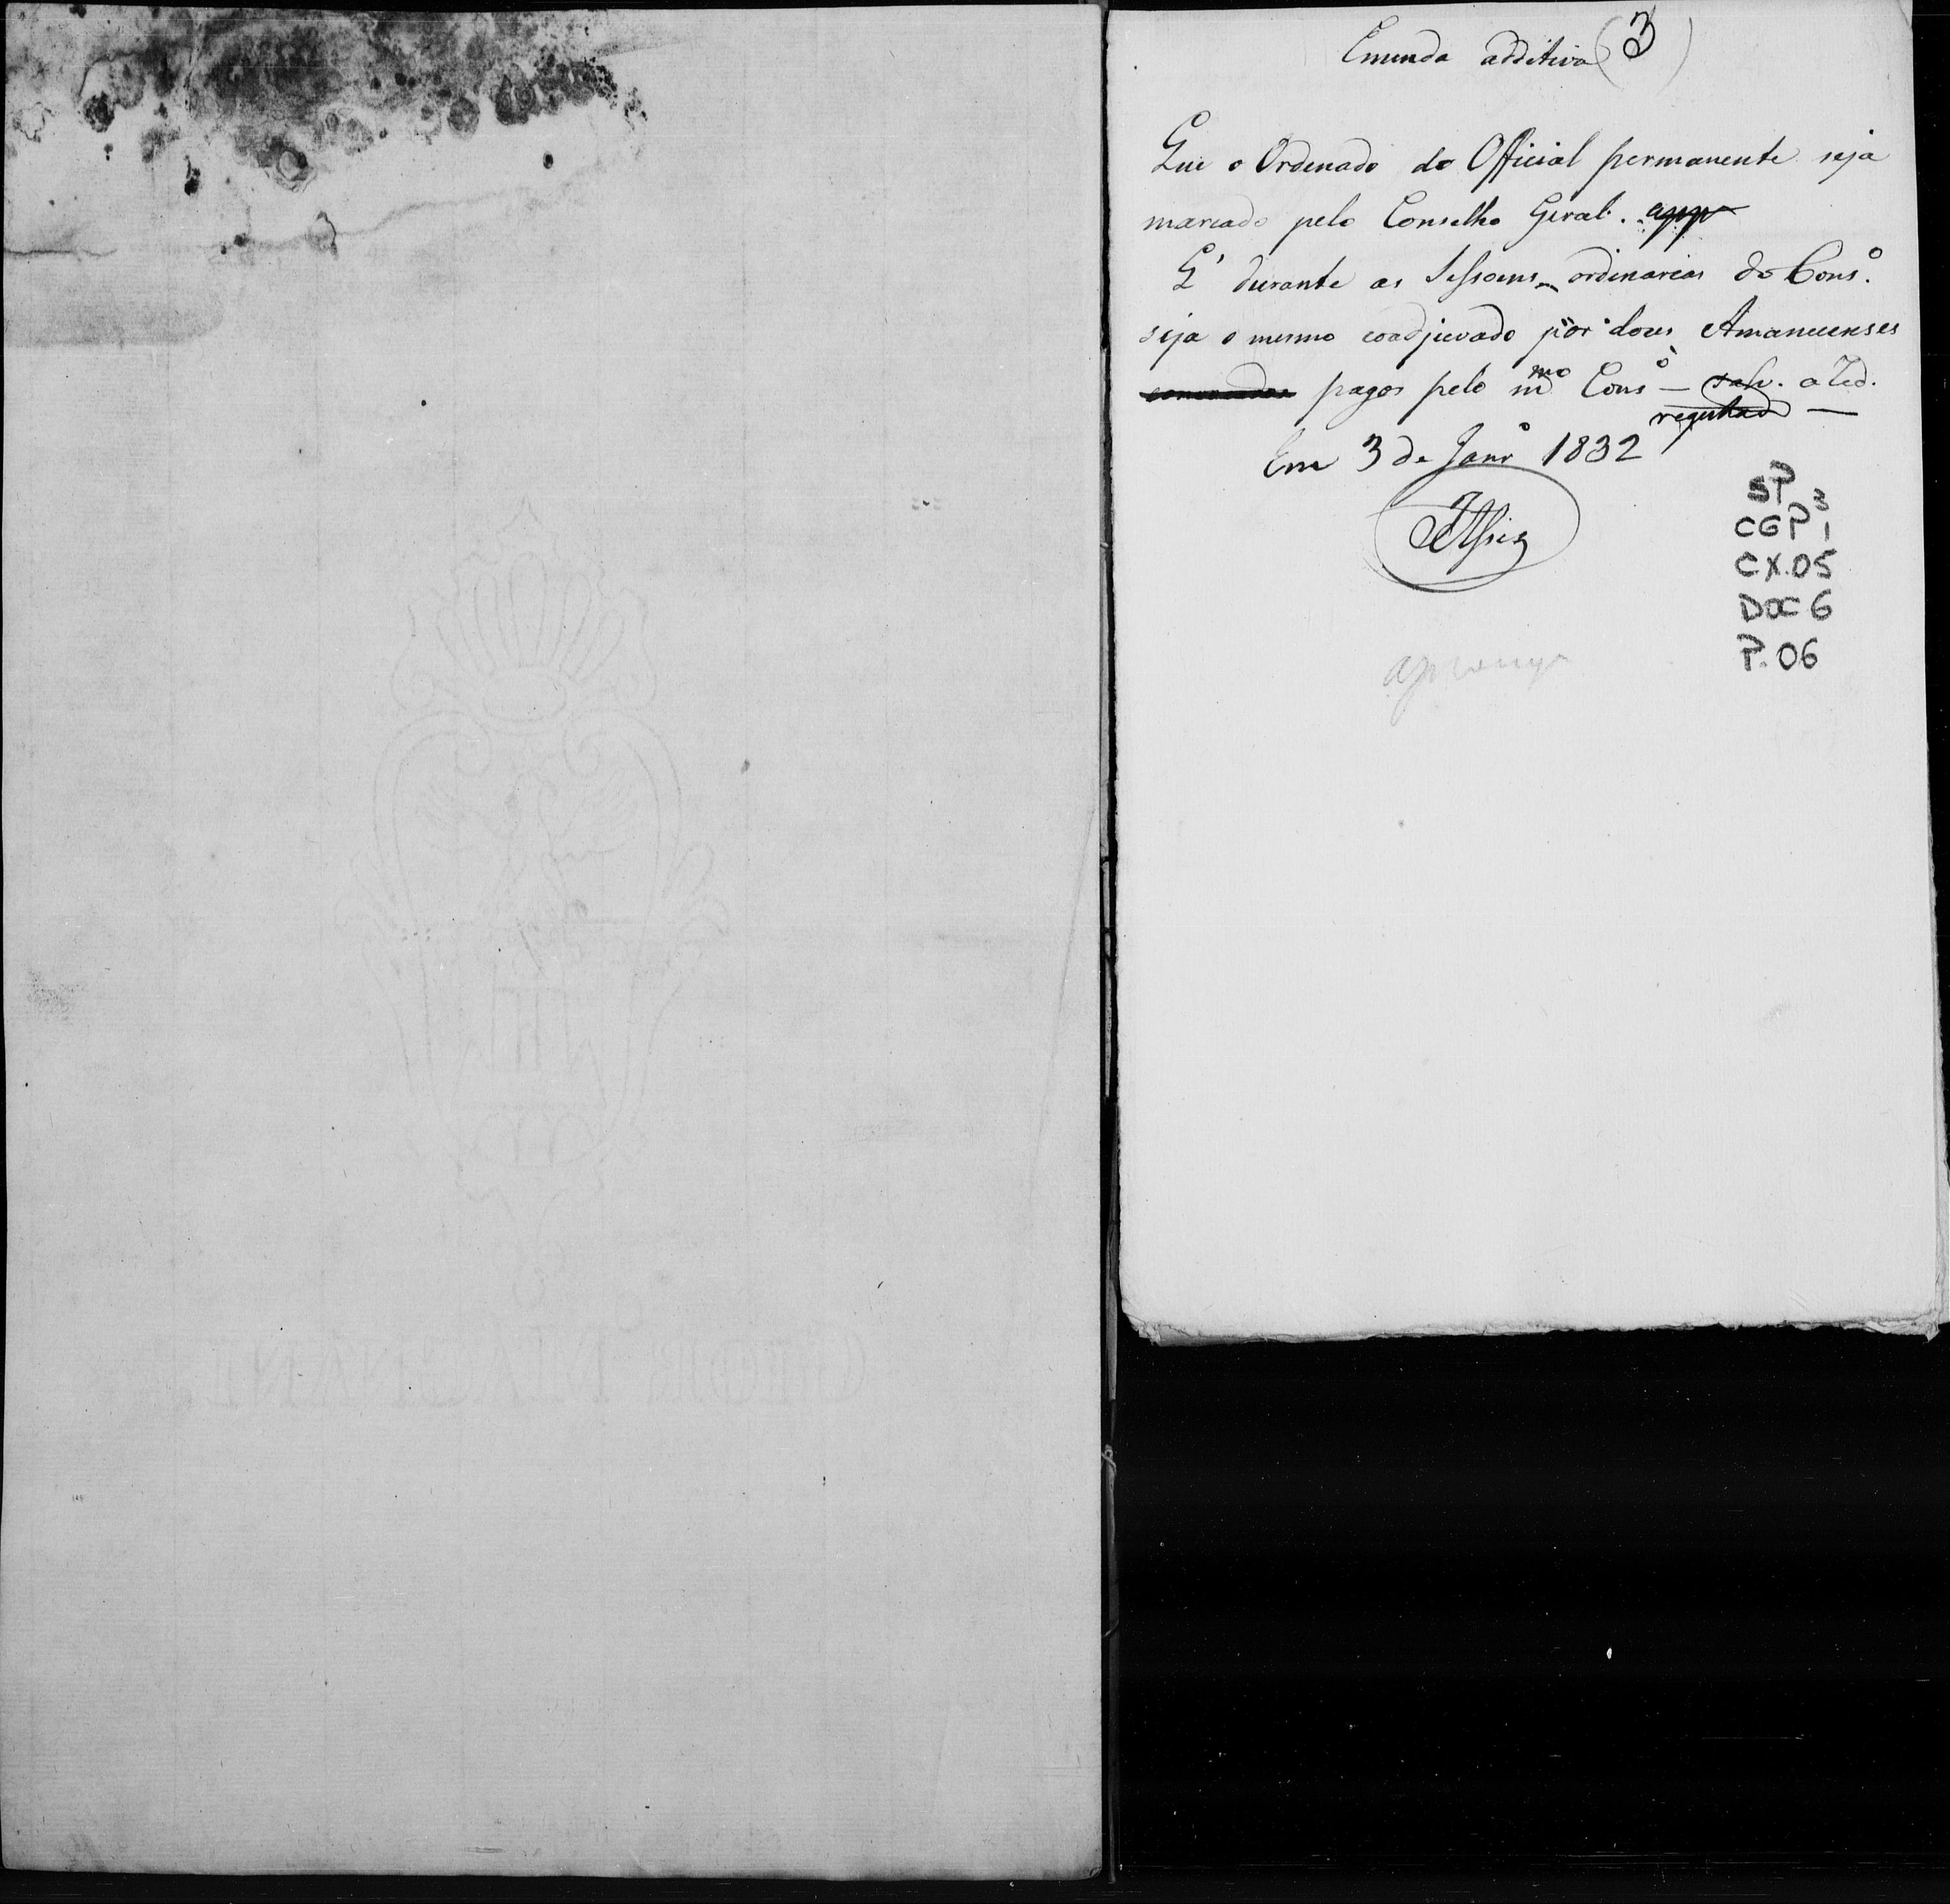 Emenda additiva (3)
Que o Ordenado do Official permanente seja
marcado pelo Conselho Geral. app
Q' durante as Sessoens ordinarias do Cons.º
seja o mesmo coadjuvado por dous Amanuenses
pagos pelo m.mo Cons.º — salv. a Red.
Em 3 de Janrº 1832
SP
CGP 1 3
CX.05
DOC 6
P. 06